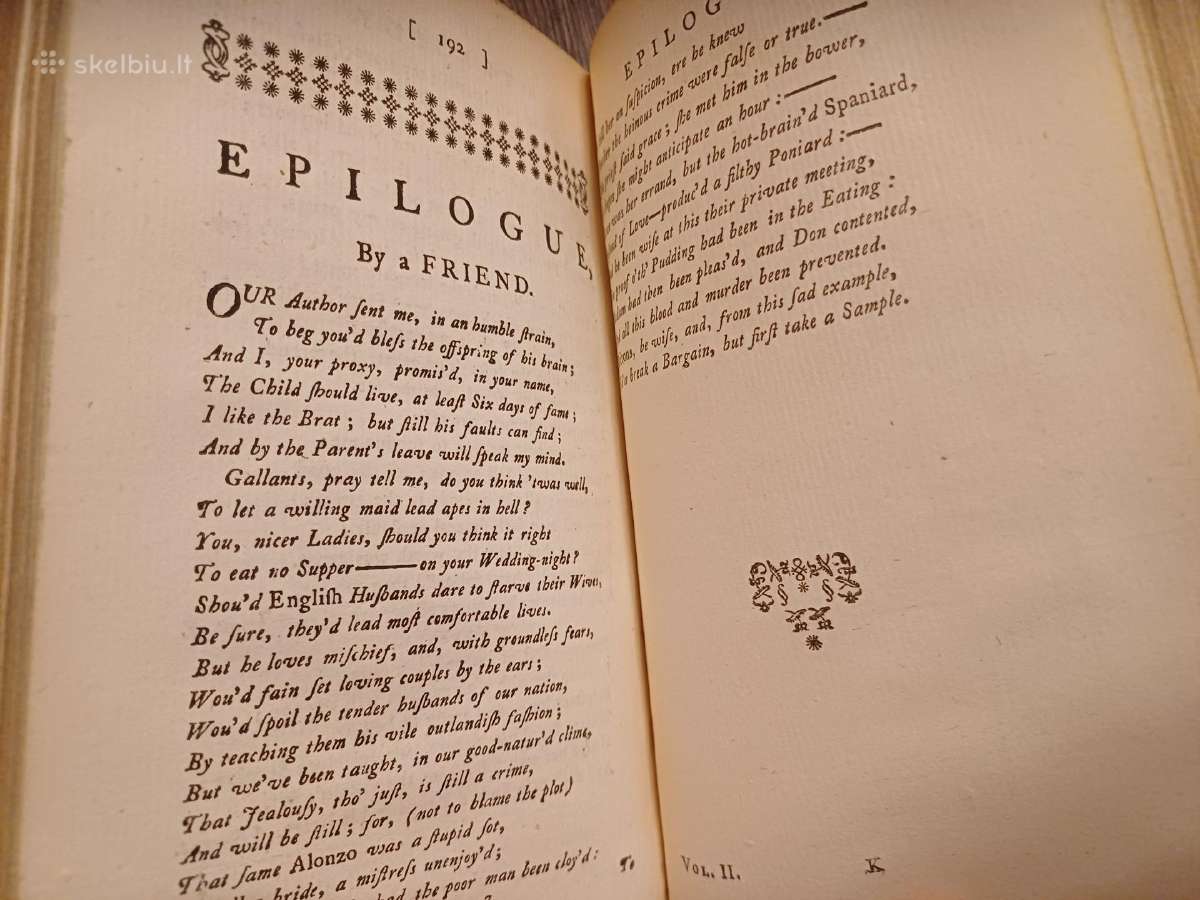 skelbiu.lt
[ 192 ]
EPILOGUE,
By a FRIEND.
OUR Author ſent me, in an humble ſtrain,
To beg you'd bleſs the offspring of his brain;
And I, your proxy, promis'd, in your name,
The Child ſhould live, at leaſt Six days of fame;
I like the Brat; but ſtill his faults can find;
And by the Parent's leave will ſpeak my mind.
Gallants, pray tell me, do you think 'twas well,
To let a willing maid lead apes in hell?
You, nicer Ladies, ſhould you think it right
To eat no Supper——on your Wedding-night?
Shou'd Engliſh Huſbands dare to ſtarve their Wives,
Be ſure, they'd lead moſt comfortable lives.
But he loves miſchief, and, with groundleſs fears,
Wou'd fain ſet loving couples by the ears;
Wou'd ſpoil the tender huſbands of our nation,
By teaching them his vile outlandiſh faſhion;
But we've been taught, in our good-natur'd clime,
That Jealouſy, tho' juſt, is ſtill a crime,
And will be ſtill; for, (not to blame the plot)
That ſame Alonzo was a ſtupid ſot,
bride, a miſtreſs unenjoy'd;
had the poor man been cloy'd:
To
EPILOG
her on ſuſpicion, ere he knew
the heinous crime were falſe or true.—
ſaid grace; ſhe met him in the bower,
ſhe might anticipate an hour:—
was her errand, but the hot-brain'd Spaniard,
of Love—produc'd a filthy Poniard:—
been wiſe at this their private meeting,
proof o'th' Pudding had been in the Eating:
had then been pleas'd, and Don contented,
all this blood and murder been prevented.
be wiſe, and, from this ſad example,
break a Bargain, but firſt take a Sample.
VOL. II.
K